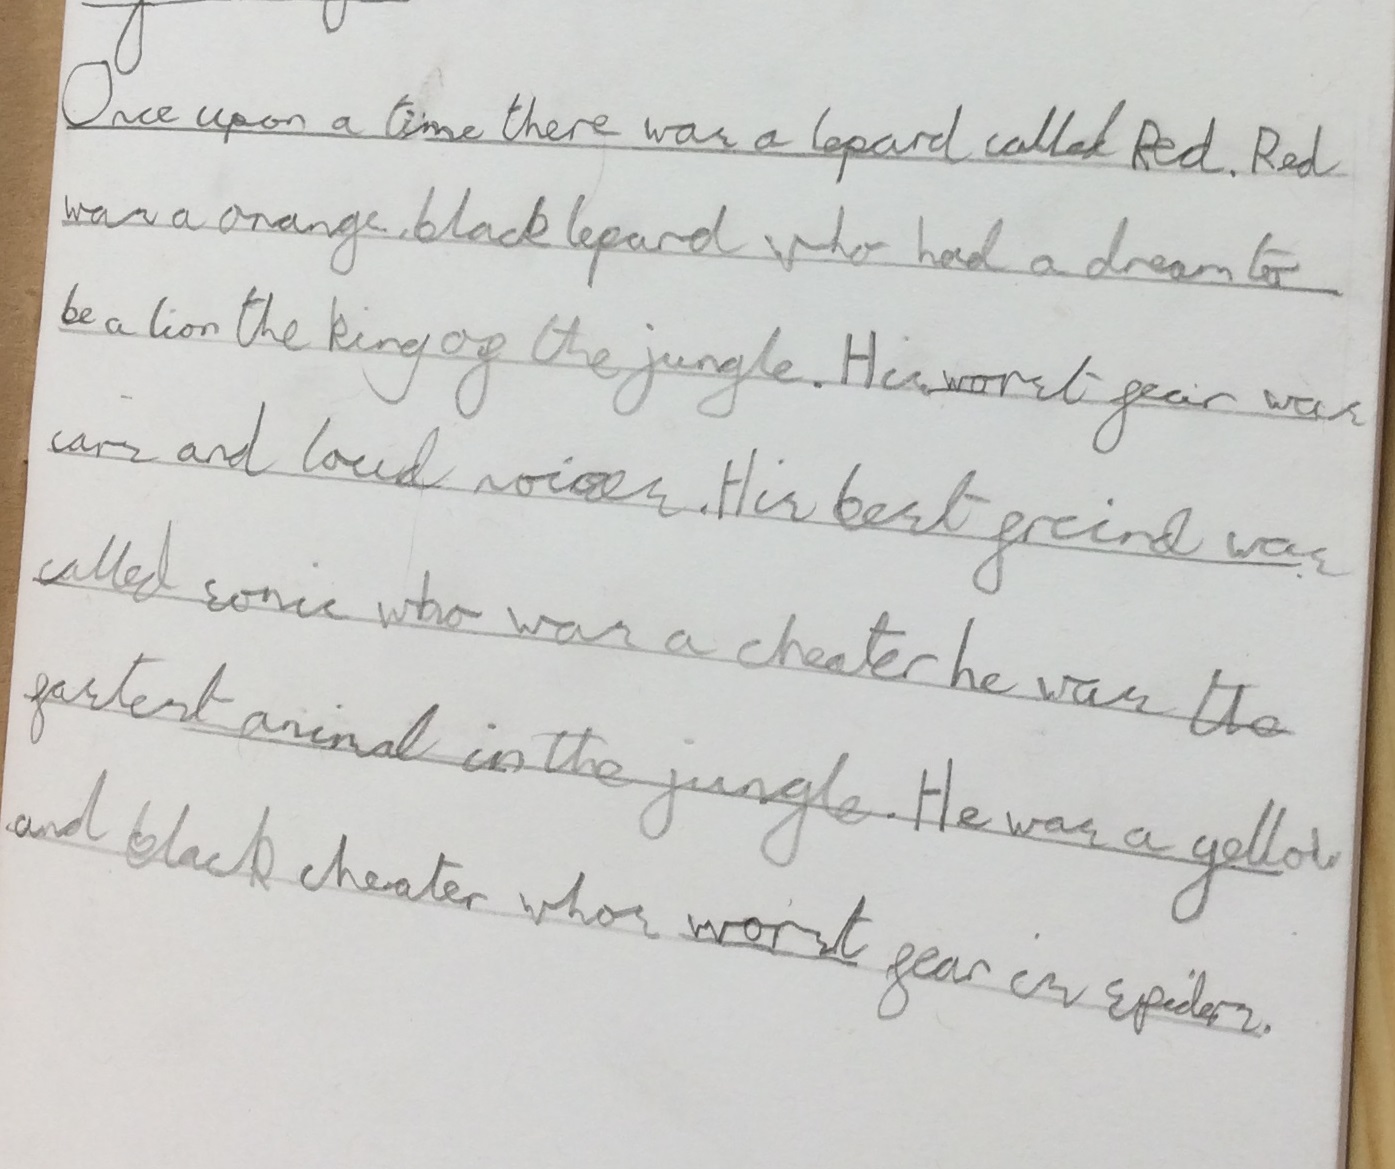 Once upon a time there was a lepard called Red. Red
was a orange, black lepard who had a dream to
be a lion the king of the jungle. His worst fear was
cars and loud noises. His best freind was
called sonic who was a cheater he was the
fastest animal in the jungle. He was a yellow
and black cheater whos worst fear is spiders.